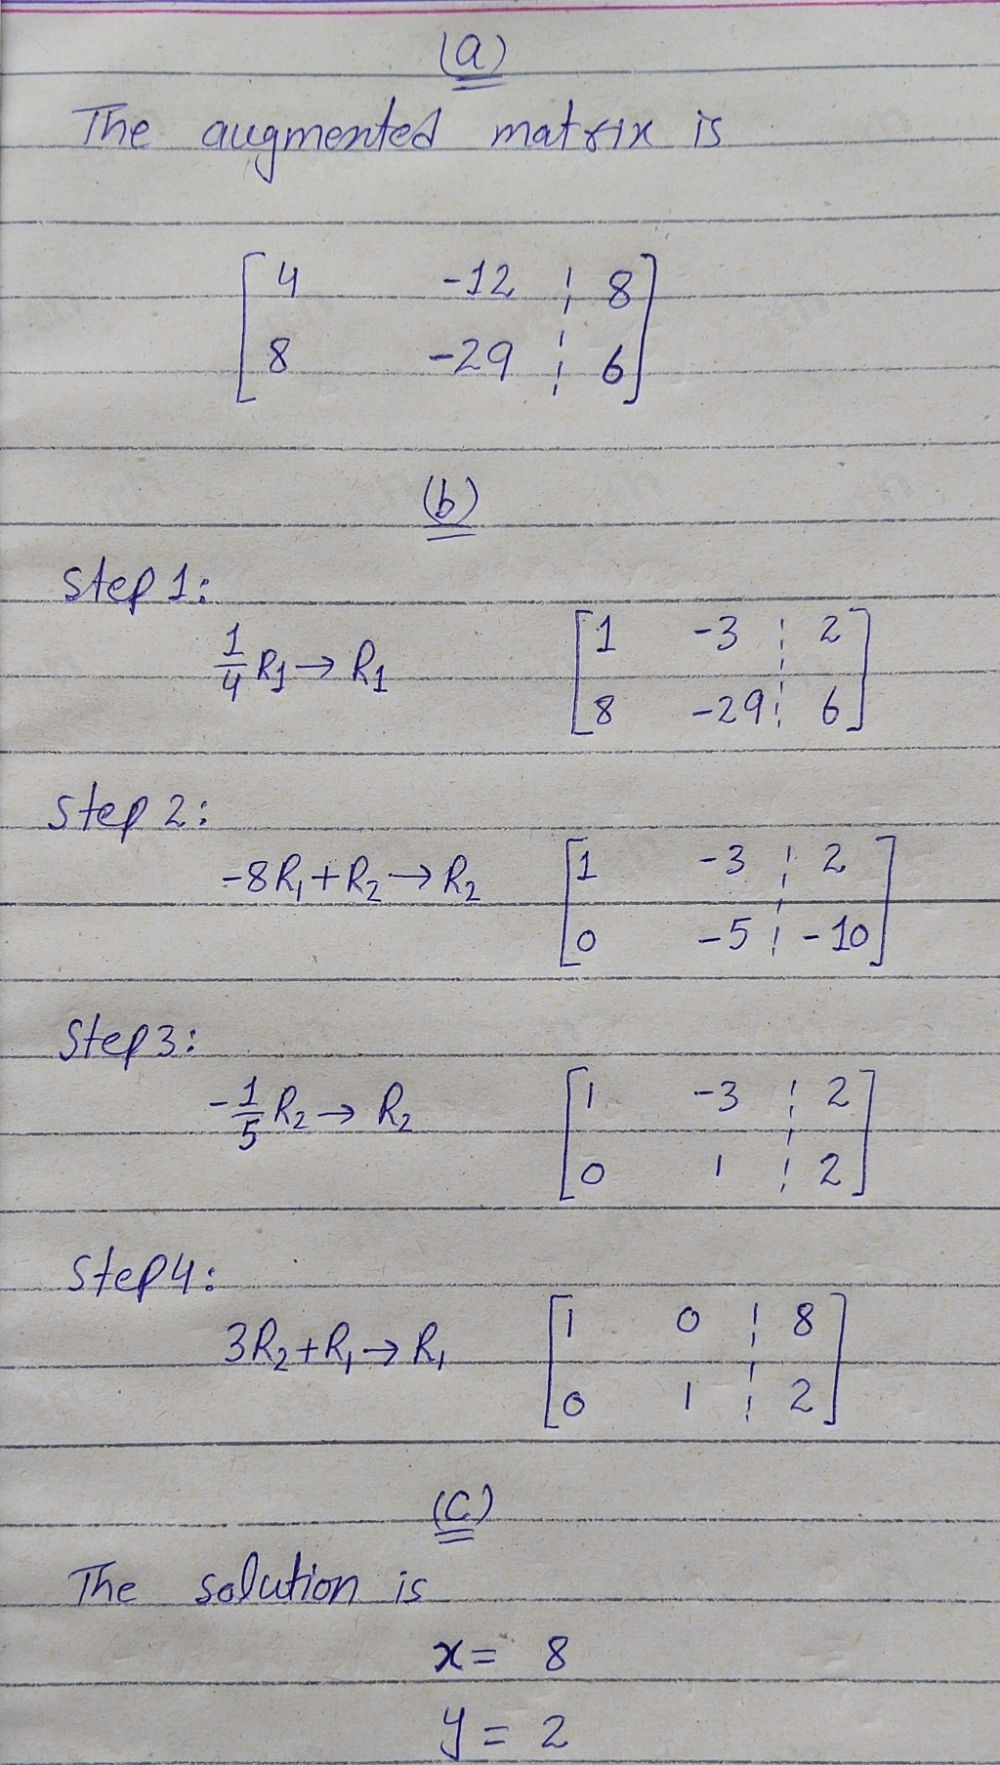 (a)
The augmented matrix is
[ 4 -12 ¦ 8 ]
[ 8 -29 ¦ 6 ]
(b)
Step 1:
1/4 R₁ → R₁ [ 1 -3 ¦ 2 ]
[ 8 -29 ¦ 6 ]
Step 2:
-8R₁ + R₂ → R₂ [ 1 -3 ¦ 2 ]
[ 0 -5 ¦ -10 ]
Step 3:
-1/5 R₂ → R₂ [ 1 -3 ¦ 2 ]
[ 0 1 ¦ 2 ]
Step 4:
3R₂ + R₁ → R₁ [ 1 0 ¦ 8 ]
[ 0 1 ¦ 2 ]
(C)
The solution is
x = 8
y = 2